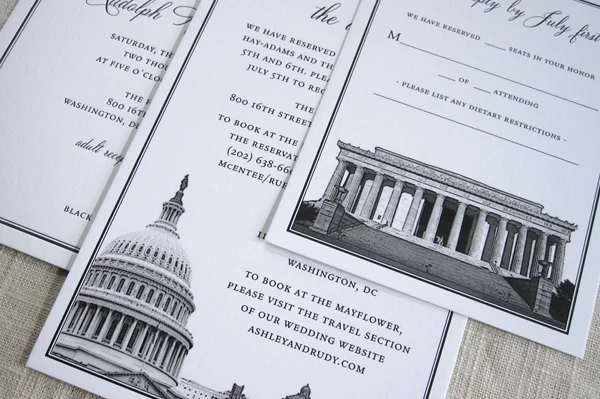 SATURDAY, THE
TWO THOUS
AT FIVE O'CLOC
THE R
800 16TH
WASHINGTON, D
adult recep
BLACK
the
WE HAVE RESERVED
HAY-ADAMS AND THE
5TH AND 6TH. PLEASE
JULY 5TH TO REC
THE
800 16TH STREET
TO BOOK AT THE
THE RESERVAT
(202) 638-66
MCENTEE/RUE
WASHINGTON, DC
TO BOOK AT THE MAYFLOWER,
PLEASE VISIT THE TRAVEL SECTION
OF OUR WEDDING WEBSITE
ASHLEYANDRUDY.COM
by July first
WE HAVE RESERVED ___ SEATS IN YOUR HONOR
M
___ OF ___ ATTENDING
- PLEASE LIST ANY DIETARY RESTRICTIONS -